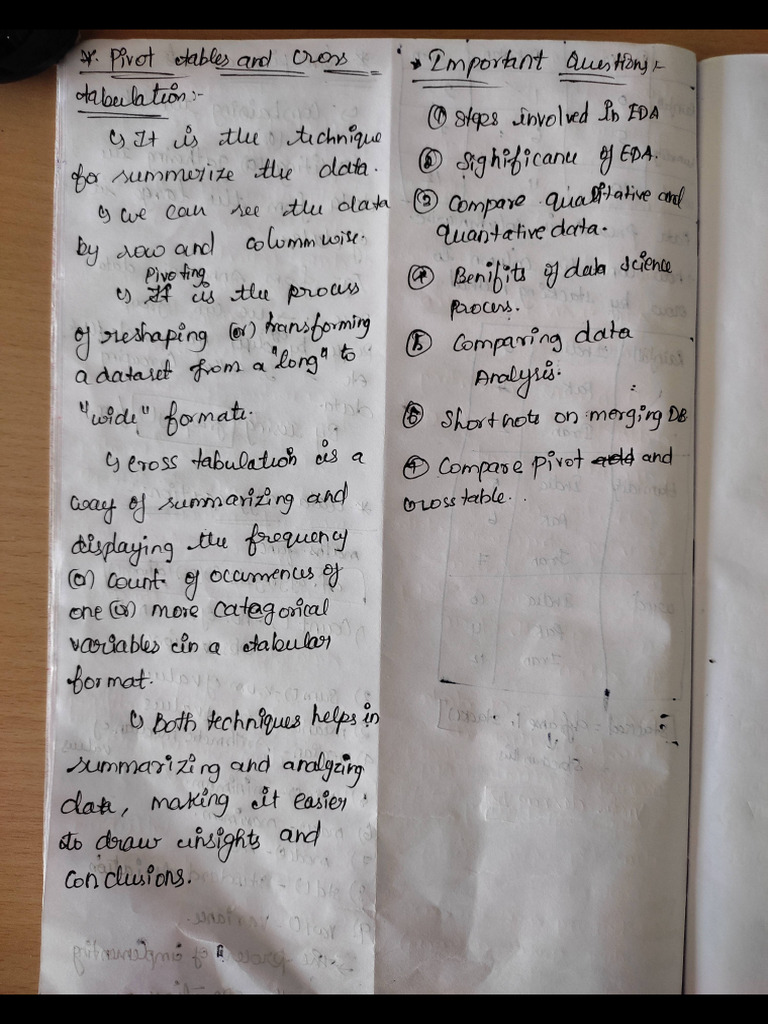 * Pivot tables and Cross
tabulation:-
↳ It is the technique
for summerize the data.
↳ we can see the data
by row and columnwise.
Pivoting
↳ It is the process
of reshaping (or) transforming
a dataset from a "long" to
"wide" format.
↳ cross tabulation is a
way of summarizing and
displaying the frequency
(or) count of occurrences of
one (or) more categorical
variables in a tabular
format.
↳ Both techniques helps in
summarizing and analyzing
data, making it easier
to draw insights and
conclusions.
* Important Questions:-
① Steps involved in EDA
② Significance of EDA.
③ compare qualitative and
quantative data.
④ Benifits of data science
process.
⑤ Comparing data
Analysis.
⑥ Short note on merging DB
⑦ Compare pivot and
cross table..